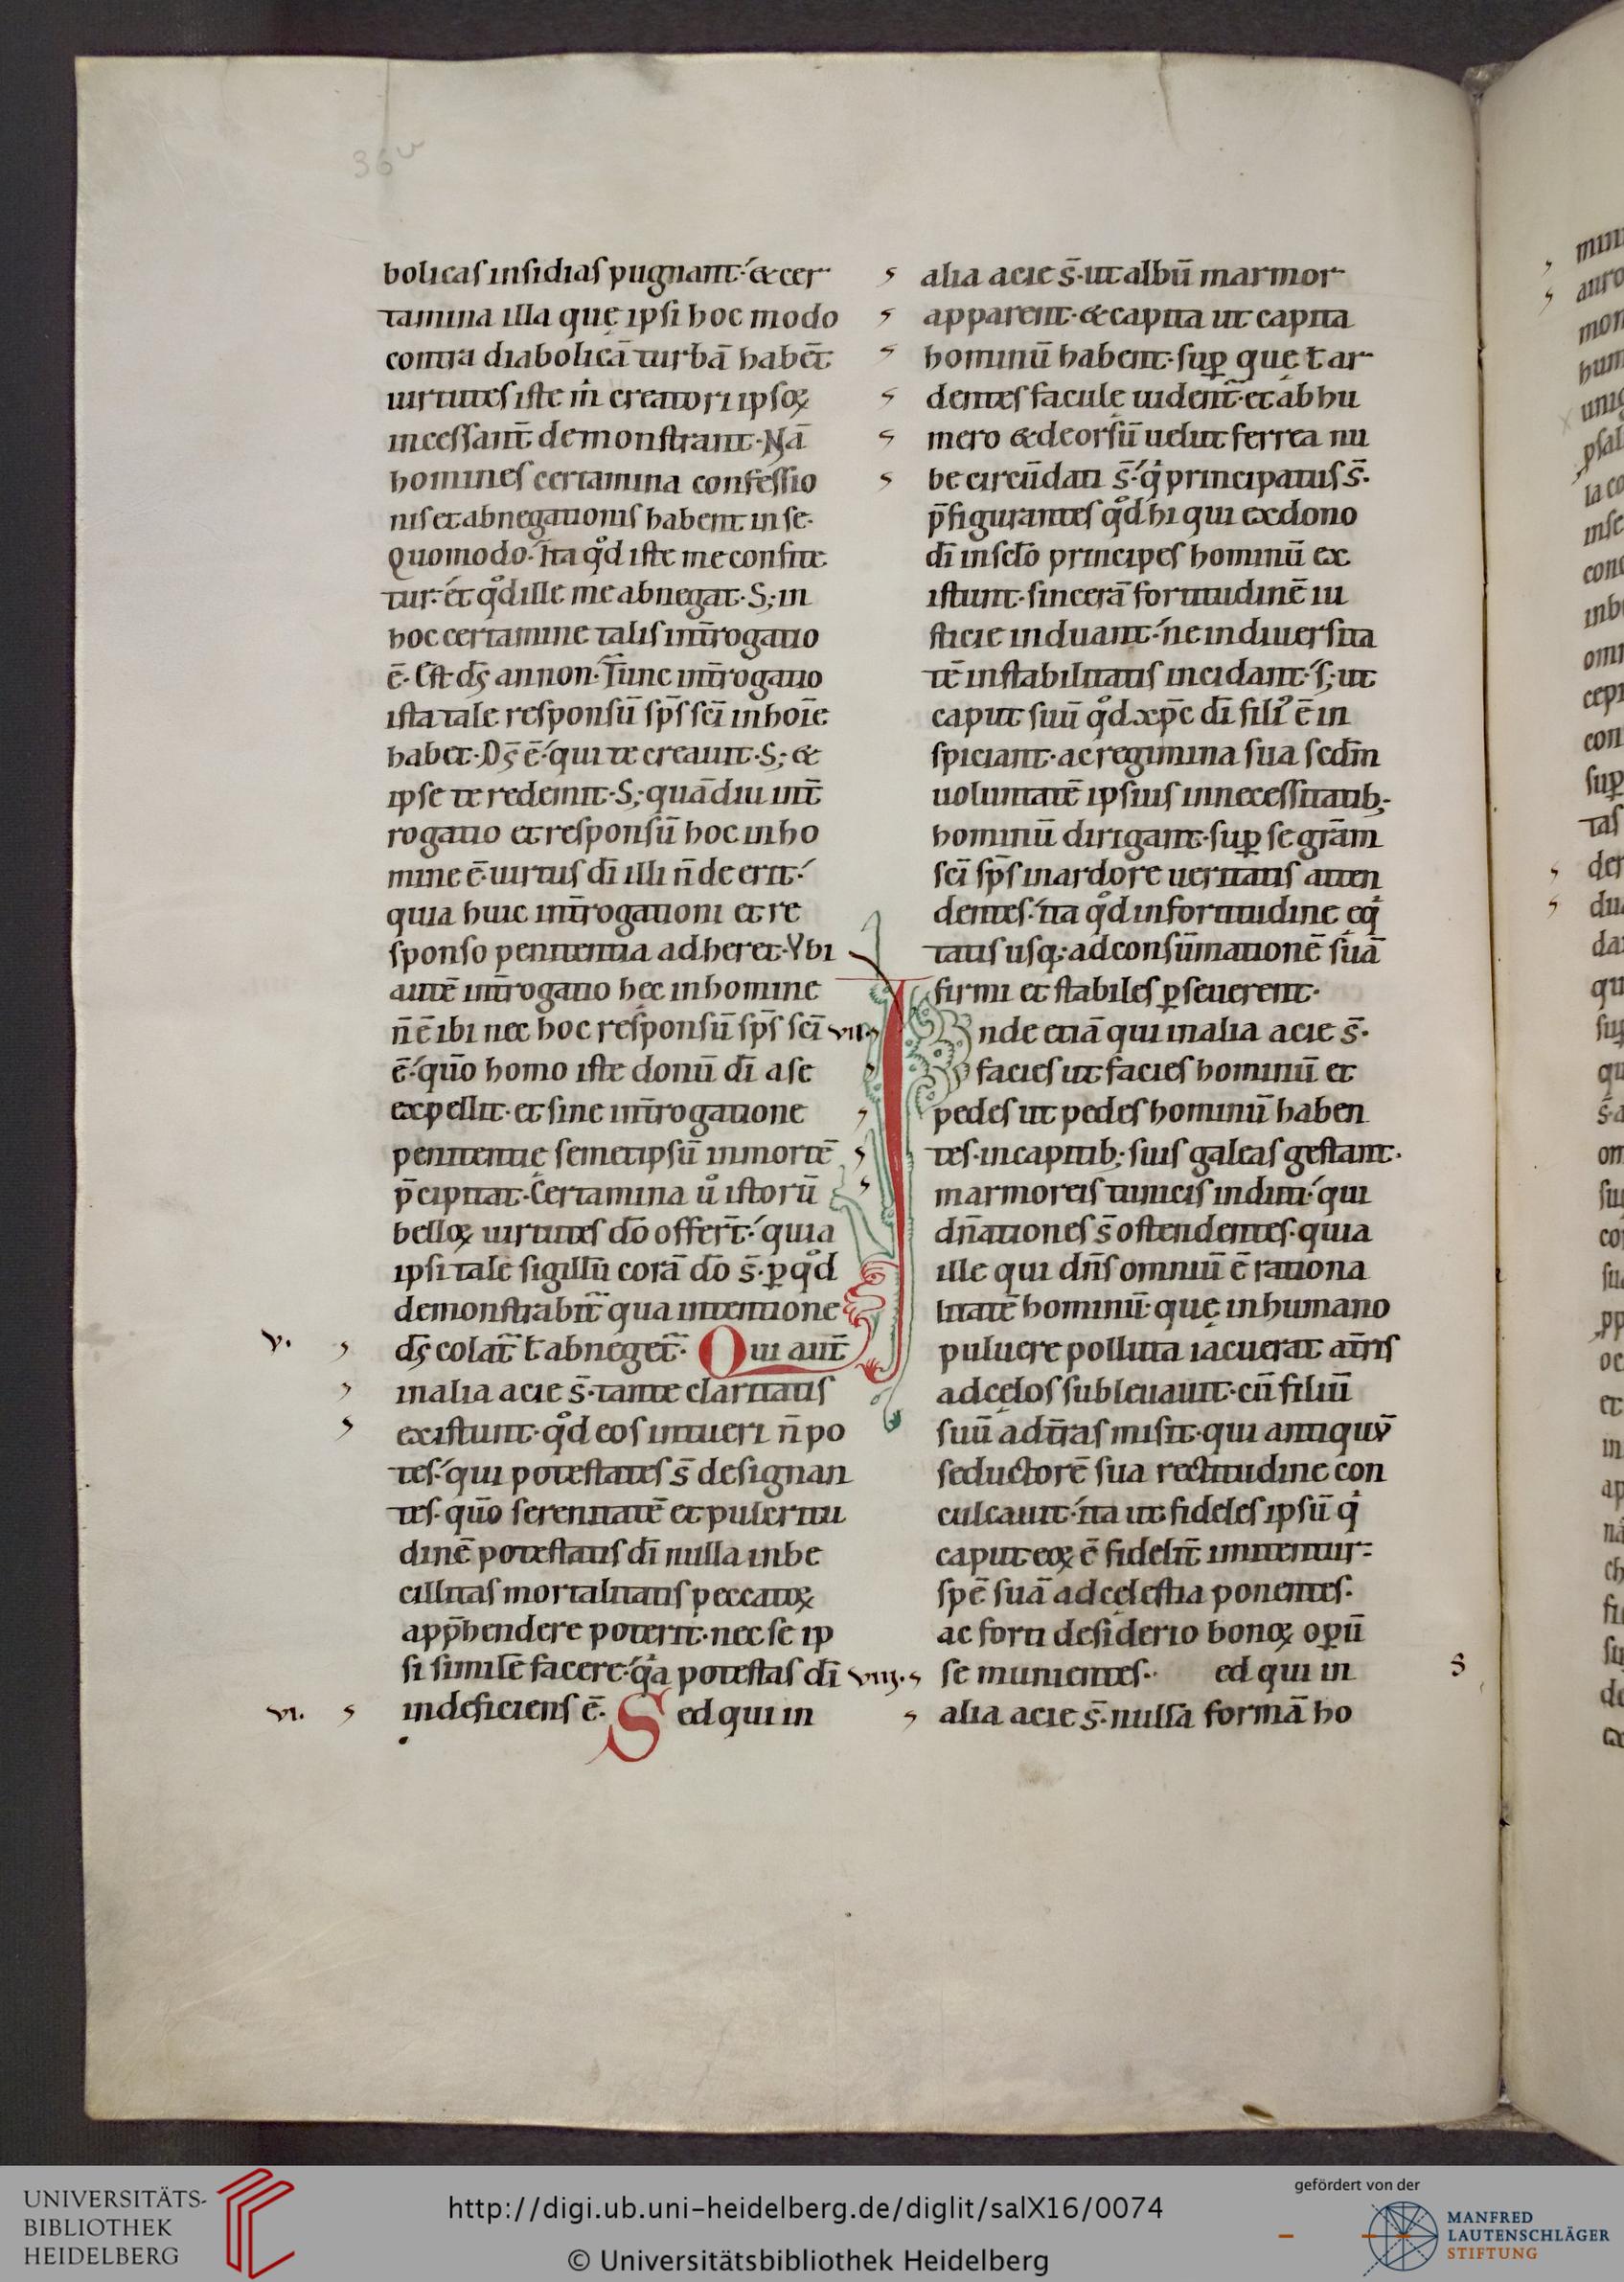 36v
bolicas insidias pugnant. & cer
tamina illa quę ipsi hoc modo
contra diabolicā turbā habēt
uirtutes iste in creatori ipsoꝝ
incessant̄ demonstrant. Nā
homines certamina confessio
nis et abnegationis habent in se.
Quomodo. Ita qd iste me confite
tur. et qd ille me abnegat. S; in
hoc certamine talis int̄rogatio
ē. Est ds̄ an non. Tunc int̄rogatio
ista tale responsū sp̄s sc̄i in hoīe
habet. Ds̄ ē. qui te creauit. S; &
ipse te redemit. S; quādiu int̄
rogatio et responsū hoc in ho
mine ē. uirtus dī illi n̄ deerit.
quia huic int̄rogationi et re
sponso penitentia adheret. Vbi
autē int̄rogatio hęc in homine
n̄ ē ibi nec hoc responsū sp̄s sc̄i
ē. quō homo iste donū dī a se
expellit. et sine int̄rogatione
penitentię semetipsū in mortē
p̄cipitat. Certamina u̇ istorū
belloꝝ uirtutes dō offert̄. quia
ipsi tale sigillū corā dō s̄. ꝑ qd
demonstrabit̄ qua intentione
v. ds̄ colat̄ ł abneget̄. Qui aut̄
in alia acie s̄. tante claritatis
existunt. qd eos intueri n̄ po
tes. qui potestates s̄ designan
tes. quō serenitatē et pulcritu
dinē potestatis dī nulla inbe
cillitas mortalitatis peccatoꝝ
app̄hendere poterit. nec se ip
si similē facere. qa potestas dī
vi. indeficiens ē. Sed qui in
alia acie s̄. ut albū marmor
apparent. & capita ut capita
hominū habent. suꝑ quę ł ar
dentes faculę uident̄. et ab hu
mero & deorsū uelut ferrea nu
be circūdati s̄. qi principatus s̄.
p̄figurantes qd hi qui ex dono
dī in sc̄lo principes hominū ex
istunt. sincerā fortitudinē iu
sticie induant. ne in diuersita
tē instabilitatis incidant. s; ut
caput suū qd xp̄c dī filiꝰ ē in
spiciant. ac regimina sua scd̄m
uoluntatē ipsius in necessitatib;
hominū dirigant. suꝑ se grām
sc̄i sp̄s in ardore ueritatis atten
dentes. ita qd in fortitudine eqi
tatis usq; ad consūmationē suā
firmi et stabiles ꝑseuerent.
vii. Inde etiā qui in alia acie s̄.
facies ut facies hominū et
pedes ut pedes hominū haben
tes. in capitib; suis galeas gestant.
marmoreis tunicis induti. qui
dn̄ationes s̄ ostendentes. quia
ille qui dn̄s omniū ē rationa
litatē hominū. quę in humano
puluere polluta iacuerat at̄ris
ad cęlos subleuauit. cū filiū
suū ad t̄ras misit. qui antiquū
seductorē sua rectitudine con
culcauit. ita ut fideles ipsū qi
caput eoꝝ ē fidelit̄ imitentur.
spē suā ad cęlestia ponentes.
ac forti desiderio bonoꝝ oꝑū
viii. se munientes. ed qui in s
alia acie s̄. nullā formā ho
UNIVERSITÄTS-
BIBLIOTHEK
HEIDELBERG
http://digi.ub.uni-heidelberg.de/diglit/salX16/0074
© Universitätsbibliothek Heidelberg
gefördert von der
MANFRED
LAUTENSCHLÄGER
STIFTUNG